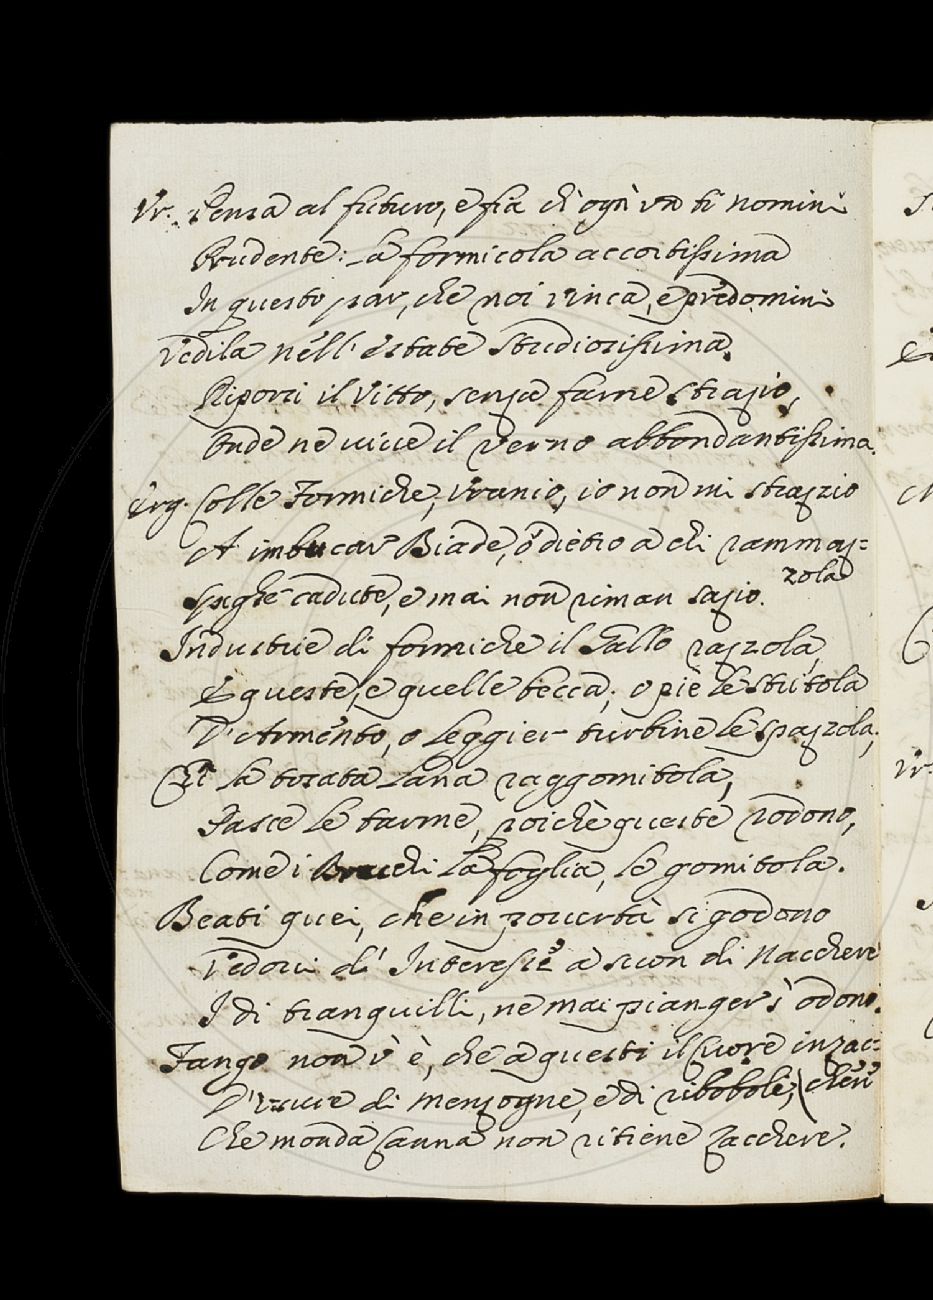 Vr. Pensa al futuro, e fia ch'ogn'un ti nomini
Prudente: La formicola accortissima
In questo par, che noi vinca, e predomini
Vedila nell'estate studiosissima
Riporsi il Vitto, senza farne strazio,
Onde ne vive il verno abbondantissima.
Erg. Colle Formiche, Vranio, io non mi strazzio
A imbucar Biade, ò dietro a chi rammaz=
zola
Spighe cadute, e mai non riman sazio.
Industrie di formiche il Gallo razzola,
E queste, e quelle becca; o piè le stritola
D'Armento, o leggier turbine le spazzola;
Chi la tosata Lana raggomitola,
Pasce le tarme, poiché queste rodono,
Come i Bruchi la foglia, le gomitola.
Beati quei, che in povertà si godono
Vedovi d'Interesse a suon di Nacchere
I dì tranquilli, ne mai pianger s'odono.
Fango non v'è, che a questi il Cuore inzac=
cheri
D' di menzogne, e di riboboli,
Che monda Canna non ritiene zacchere.